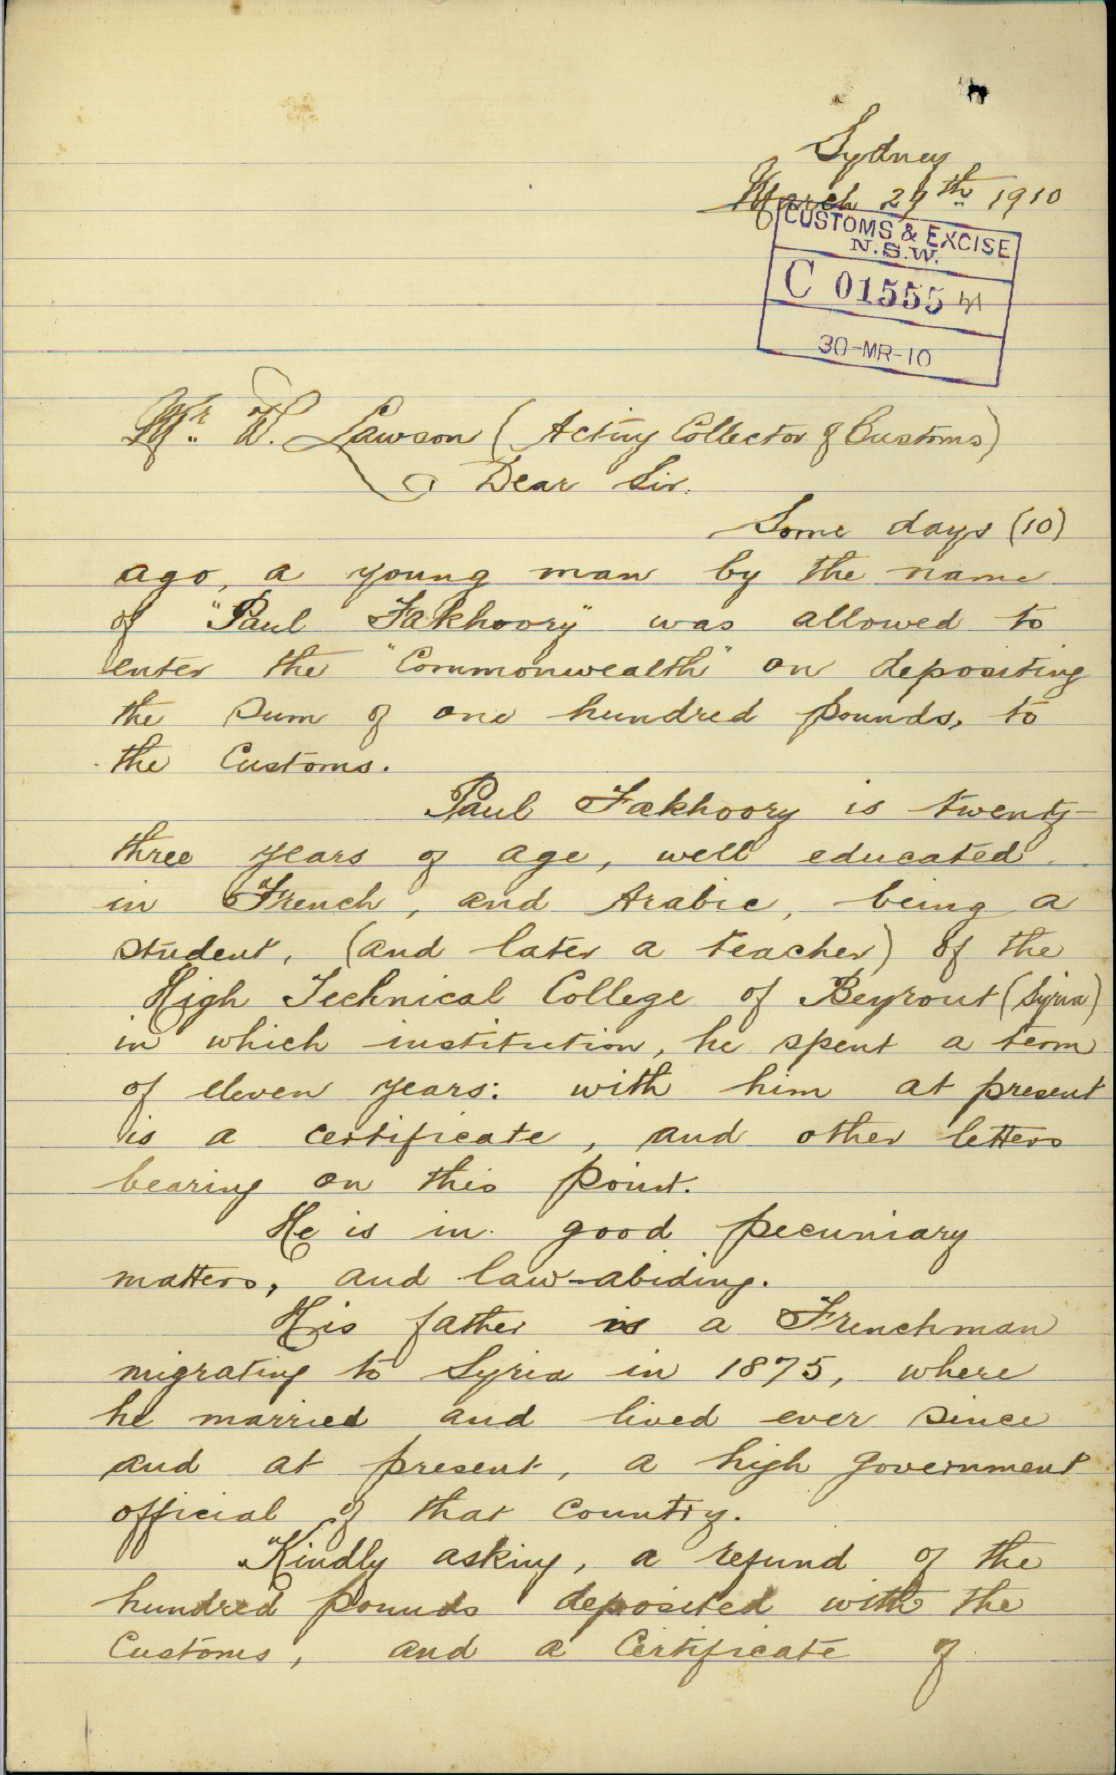 Sydney
March 29th 1910
CUSTOMS & EXCISE
N.S.W.
C 01555
30-MR-10
Mr. W. Lawson (Acting Collector of Customs)
Dear Sir.
Some days (10)
ago, a young man by the name
of "Paul Fakhoory" was allowed to
enter the "Commonwealth" on depositing
the sum of one hundred pounds, to
the Customs.
Paul Fakhoory is twenty-
three years of age, well educated
in French, and Arabic, being a
student, (and later a teacher) of the
High Technical College of Beyrout (Syria)
in which institution, he spent a term
of eleven years: with him at present
is a certificate, and other letters
bearing on this point.
He is in good pecuniary
matters, and law-abiding.
His father is a Frenchman
migrating to Syria in 1875, where
he married and lived ever since
and at present, a high government
official of that country.
Kindly asking, a refund of the
hundred pounds deposited with the
Customs, and a Certificate of